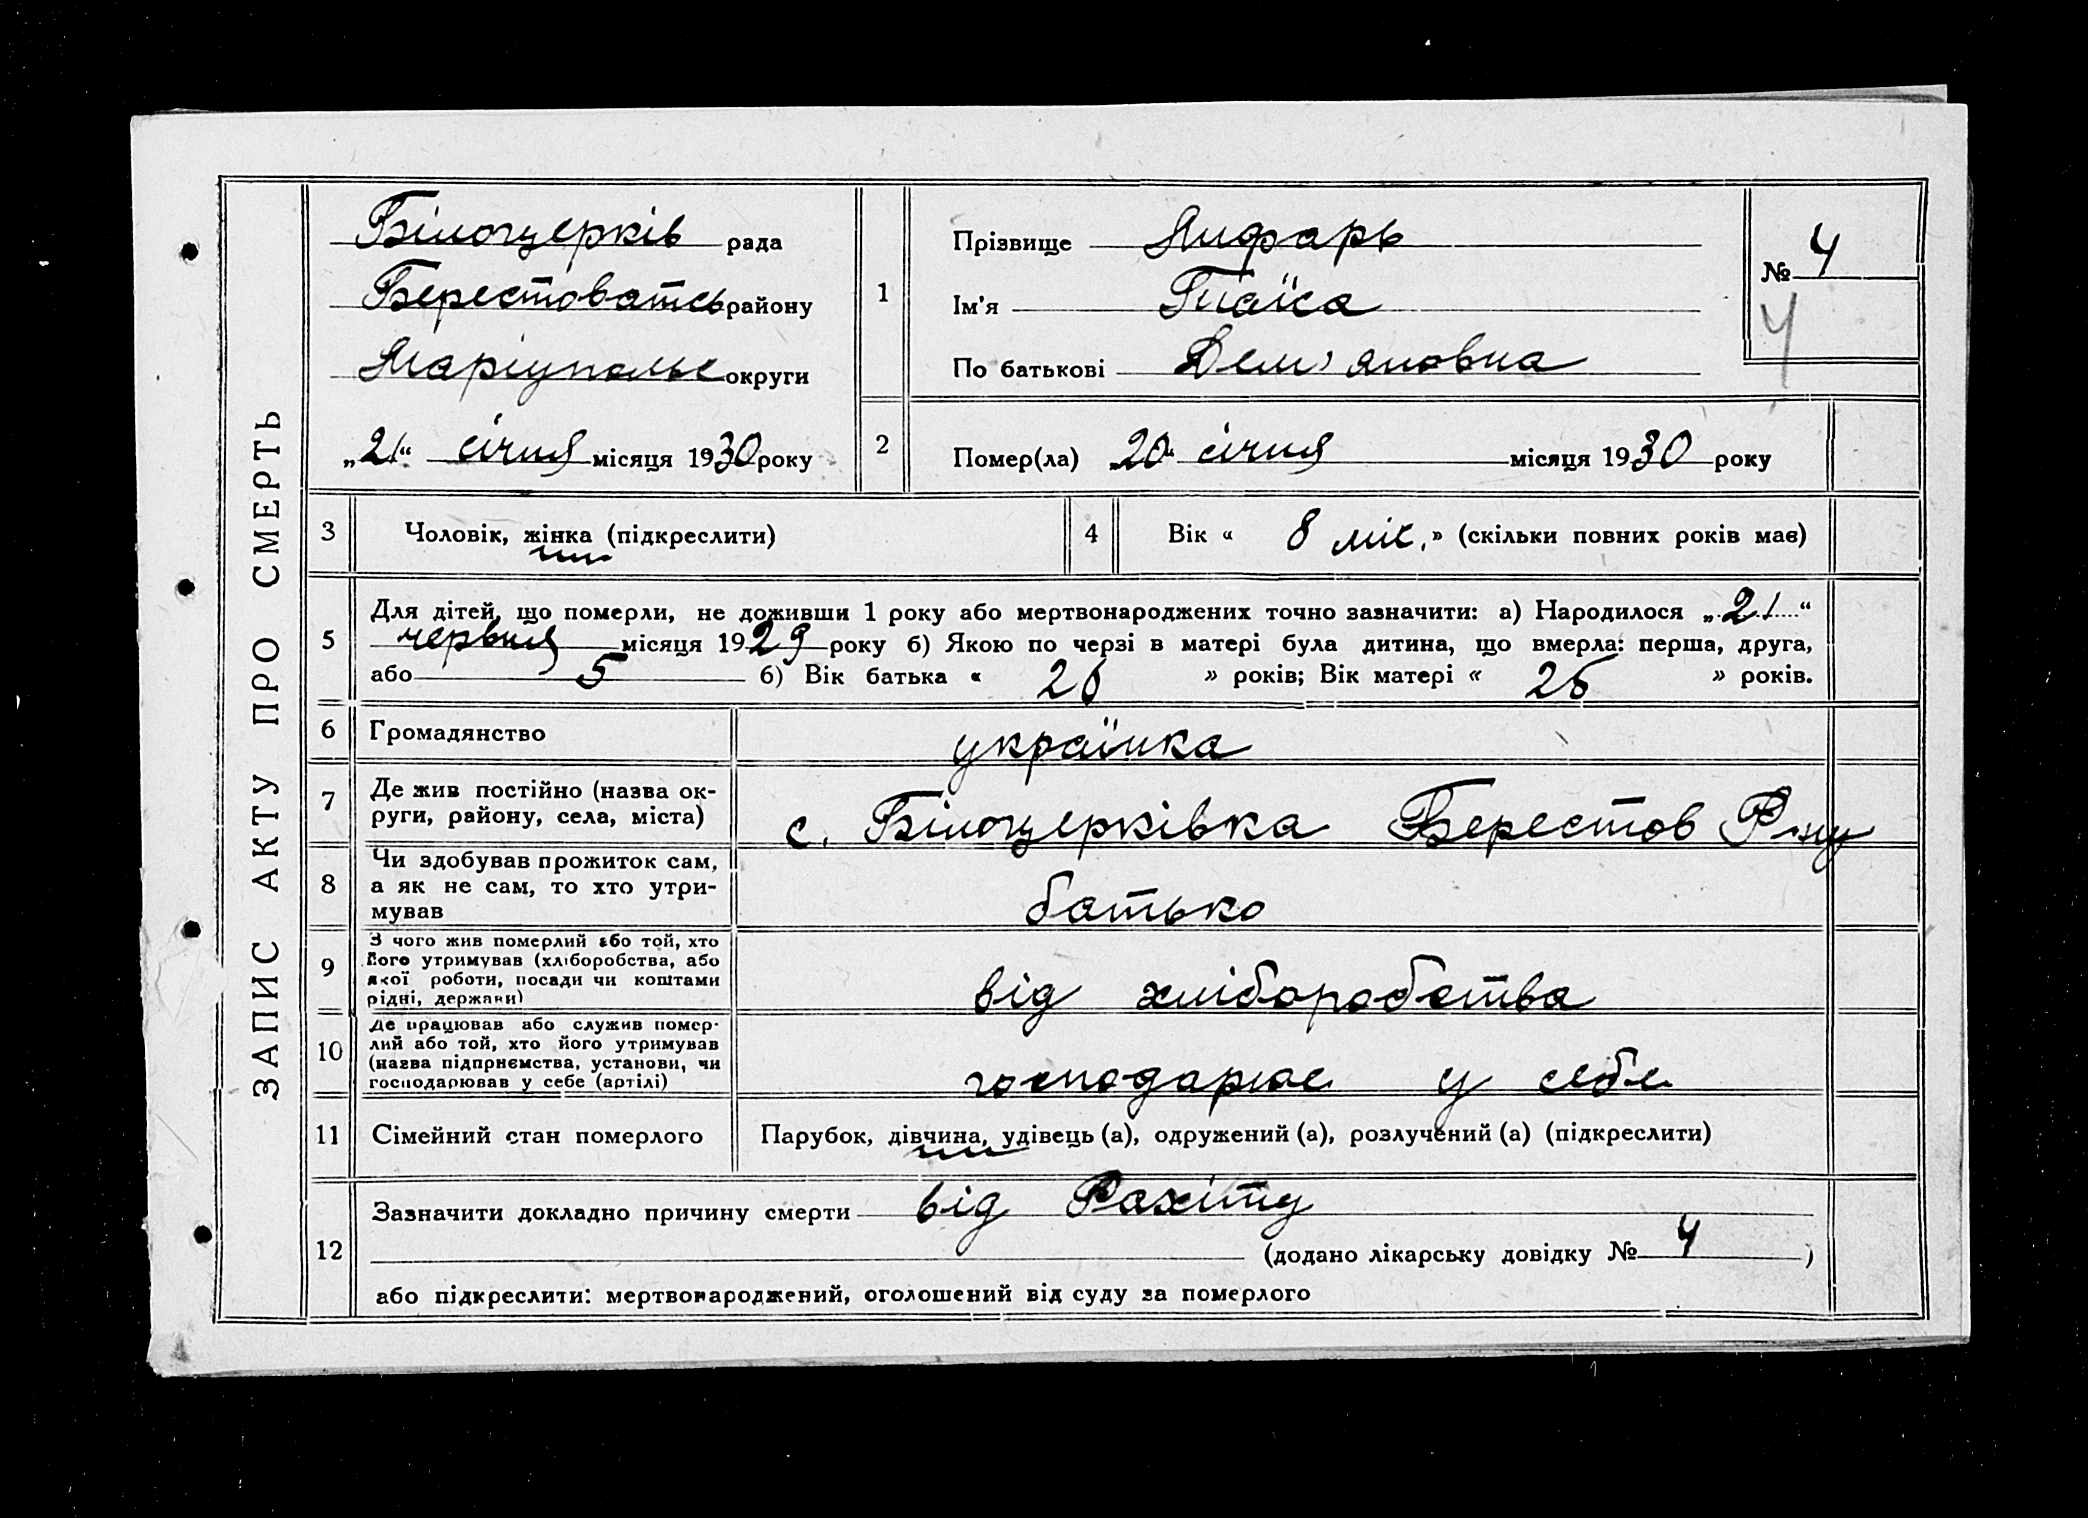 ЗАПИС АКТУ ПРО СМЕРТЬ
Білоцерків рада
Берестоватсь району
Маріупольс округи
„21“ січня місяця 1930 року
1
Прізвище Лифарь
Ім'я Таїса
По батькові Дем'яновна
№ 4
4
2
Помер(ла) „20“ січня місяця 1930 року
3 Чоловік, жінка (підкреслити)
4 Вік « 8 міс. » (скільки повних років має)
5
Для дітей, що померли, не доживши 1 року або мертвонароджених точно зазначити: а) Народилося „21“
червня місяця 1929 року б) Якою по черзі в матері була дитина, що вмерла: перша, друга,
або 5 б) Вік батька « 26 » років; Вік матері « 25 » років.
6 Громадянство українка
7 Де жив постійно (назва ок-
руги, району, села, міста)
с. Білоцерківка Берестов Р-ну
8 Чи здобував прожиток сам,
а як не сам, то хто утри-
мував
батько
9 З чого жив померлий або той, хто
його утримував (хліборобства, або
якої роботи, посади чи коштами
рідні, держави)
від хліборобства
10 Де працював або служив помер-
лий або той, хто його утримував
(назва підприємства, установи, чи
господарював у себе (артілі)
господарює у себе
11 Сімейний стан померлого Парубок, дівчина, удівець (а), одружений (а), розлучений (а) (підкреслити)
12
Зазначити докладно причину смерти від Рахіту
(додано лікарську довідку № 4 )
або підкреслити: мертвонароджений, оголошений від суду за померлого